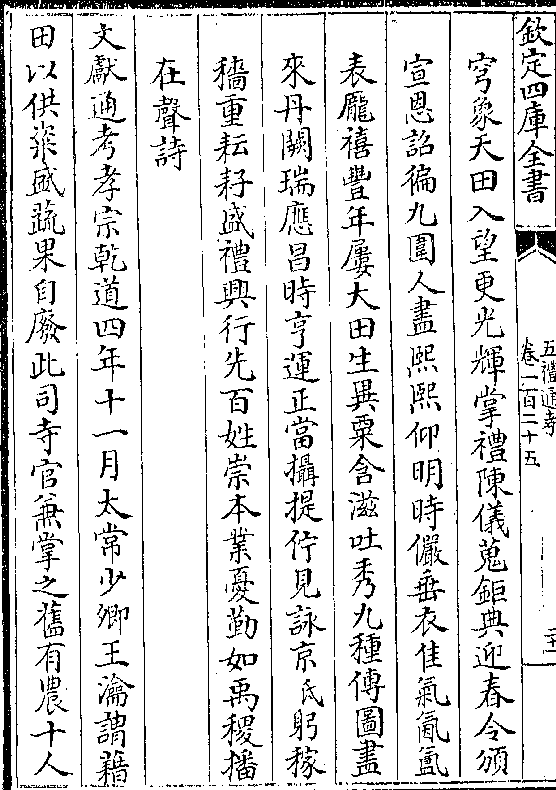 欽定四庫全書
五禮通考
卷一百二十五
穹象天田入望更光輝掌禮陳儀蒐鉅典迎春令頒
宣恩詔徧九圍人盡熙熙仰明時儼垂衣佳氣氤氳
表龐禧豐年屢大田生異粟含滋吐秀九種傳圖盡
來丹闕瑞應昌時亨運正當攝提佇見詠京氏躬稼
穡重耘耔盛禮興行先百姓崇本業憂勤如禹稷播
在聲詩
文獻通考孝宗乾道四年十一月太常少卿王瀹謂藉
田以供粢盛蔬果自廢此司寺官兼掌之舊有農十人